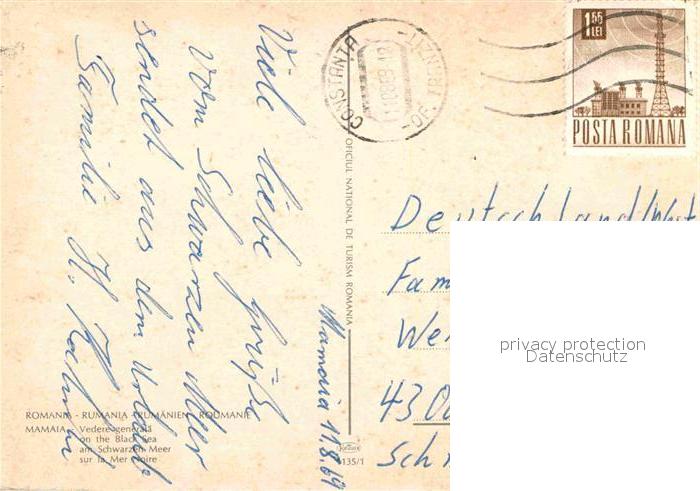 Viele liebe Grüße
vom Schwarzen Meer
sendet aus dem Urlaub
Familie H.
Mamaia 11.8.69
CONSTANTA
1.55
LEI
POSTA ROMANA
OFICIUL NATIONAL DE TURISM ROMANIA
Deutschland/West
Fam
We
43 00
Sch
privacy protection
Datenschutz
ROMANIA - RUMANIA - RUMÄNIEN - ROUMANIE
MAMAIA - Vedere generală
on the Black Sea
am Schwarzen Meer
sur la Mer Noire
4135/1